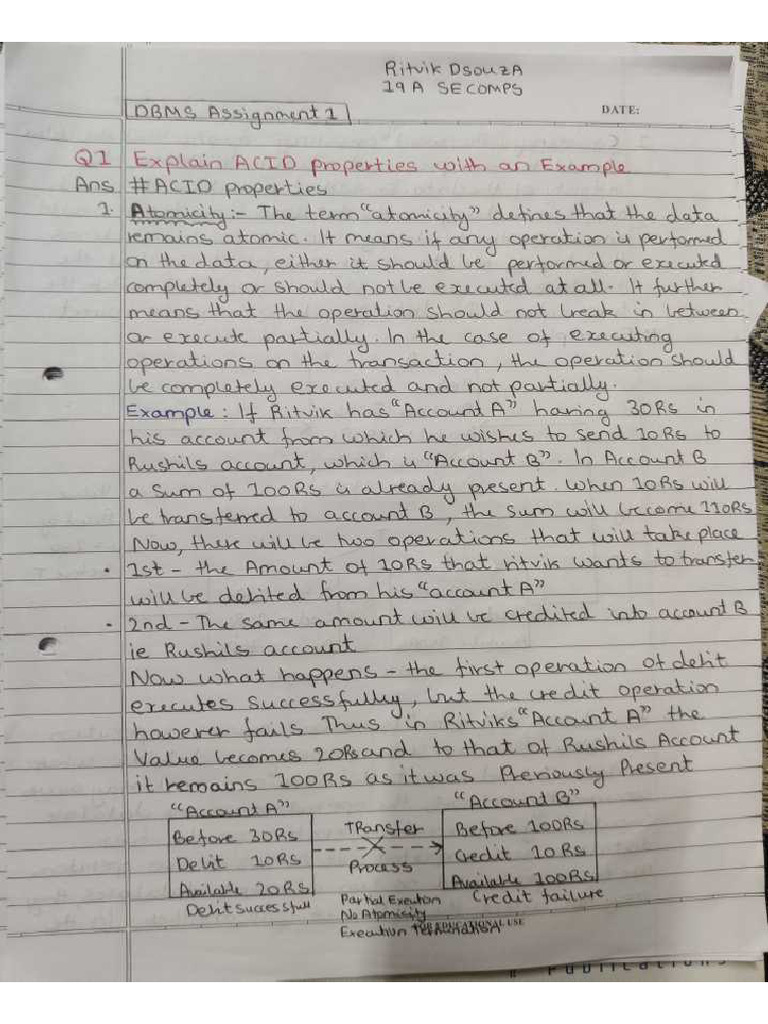 Ritvik DsouzA
19A SECOMPS
DBMS Assignment 1 DATE:
Q1 Explain ACID properties with an Example
Ans #ACID properties
1. Atomicity:- The term "atomicity" defines that the data
remains atomic. It means if any operation is performed
on the data, either it should be performed or executed
completely or should not be executed at all. It further
means that the operation should not break in between
or execute partially. In the case of executing
operations on the transaction, the operation should
be completely executed and not partially.
Example: If Ritvik has "Account A" having 30Rs in
his account from which he wishes to send 10Rs to
Rushils account, which is "Account B". In Account B
a sum of 100Rs is already present. When 10Rs will
be transferred to account B, the sum will become 110Rs
Now, there will be two operations that will take place
• 1st - the Amount of 10Rs that ritvik wants to transfer
will be debited from his "account A"
• 2nd - The same amount will be credited into account B
ie Rushils account
Now what happens - the first operation of debit
executes successfully, but the credit operation
however fails Thus in Ritviks "Account A" the
Value becomes 20Rs and to that of Rushils Account
it remains 100Rs as it was Previously Present
"Account A" "Account B"
Before 30Rs Transfer Before 100Rs
Debit 10Rs Process Credit 10Rs
Available 20Rs Available 100Rs
Debit successfull Partial Exeution Credit failure
No Atomicity
Execution Termination
EDUCATIONAL USE
Publications